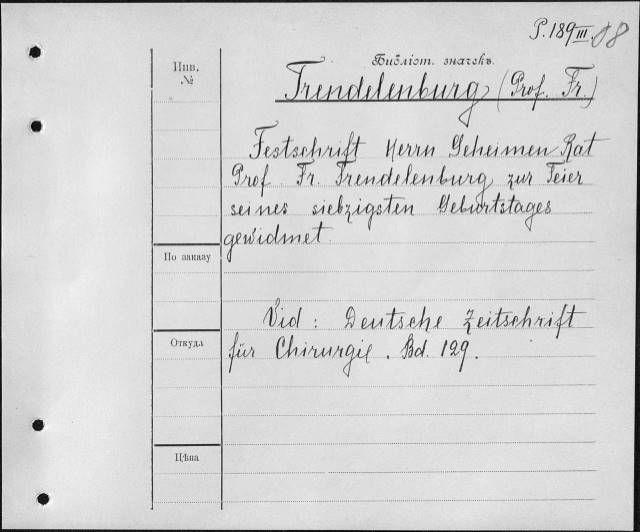 P. 189 III. 08
Библіот. значекъ.
Инв.
№
Trendelenburg (Prof. Fr.)
Festschrift Herrn Geheimen Rat
Prof. Fr. Trendelenburg zur Feier
seines siebzigsten Geburtstages
gewidmet.
По заказу
Vid: Deutsche Zeitschrift
Откуда
für Chirurgie. Bd. 129.
Цѣна